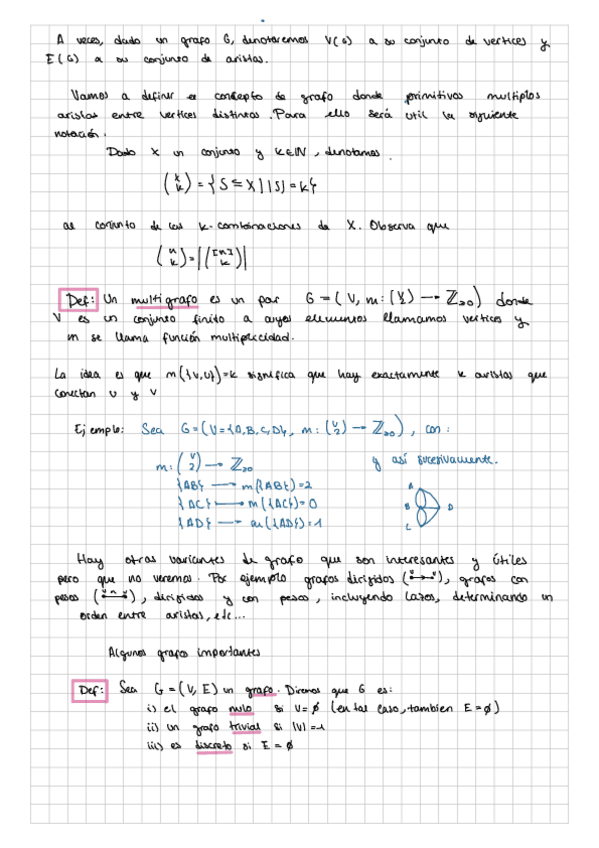 A veces, dado un grafo G, denotaremos V(G) a su conjunto de vertices y
E(G) a su conjunto de aristas.
Vamos a definir el concepto de grafo donde primitivos multiples
aristas entre vertices distintos. Para ello será util la siguiente
notación.
Dado X un conjunto y K∈ℕ, denotamos.
(X k) = {S ⊆ X | |S| = k}
al conjunto de las k-combinaciones de X. Observa que
(n k) = |([n] k)|
Def: Un multigrafo es un par G = (V, m: (V 2) → ℤ≥0) donde
V es un conjunto finito a cuyos elementos llamamos vertices y
m se llama función multiplicidad.
La idea es que m({v,u})=k significa que hay exactamente k aristas que
conectan u y v
Ejemplo: Sea G=(V={A,B,C,D}, m: (V 2) → ℤ≥0), con:
m: (V 2) → ℤ≥0 y así sucesivamente.
{AB} → m({AB})=2 A
{AC} → m({AC})=0 B D
{AD} → m({AD})=1 C
Hay otras variantes de grafo que son interesantes y útiles
pero que no veremos. Por ejemplo grafos dirigidos (u → v), grafos con
pesos (u n v), dirigidos y con pesos, incluyendo lazos, determinando un
orden entre aristas, etc...
Algunos grafos importantes
Def: Sea G = (V, E) un grafo. Diremos que G es:
i) el grafo nulo si V=∅ (en tal caso, tambien E=∅)
ii) un grafo trivial si |V|=1
iii) es discreto si E = ∅